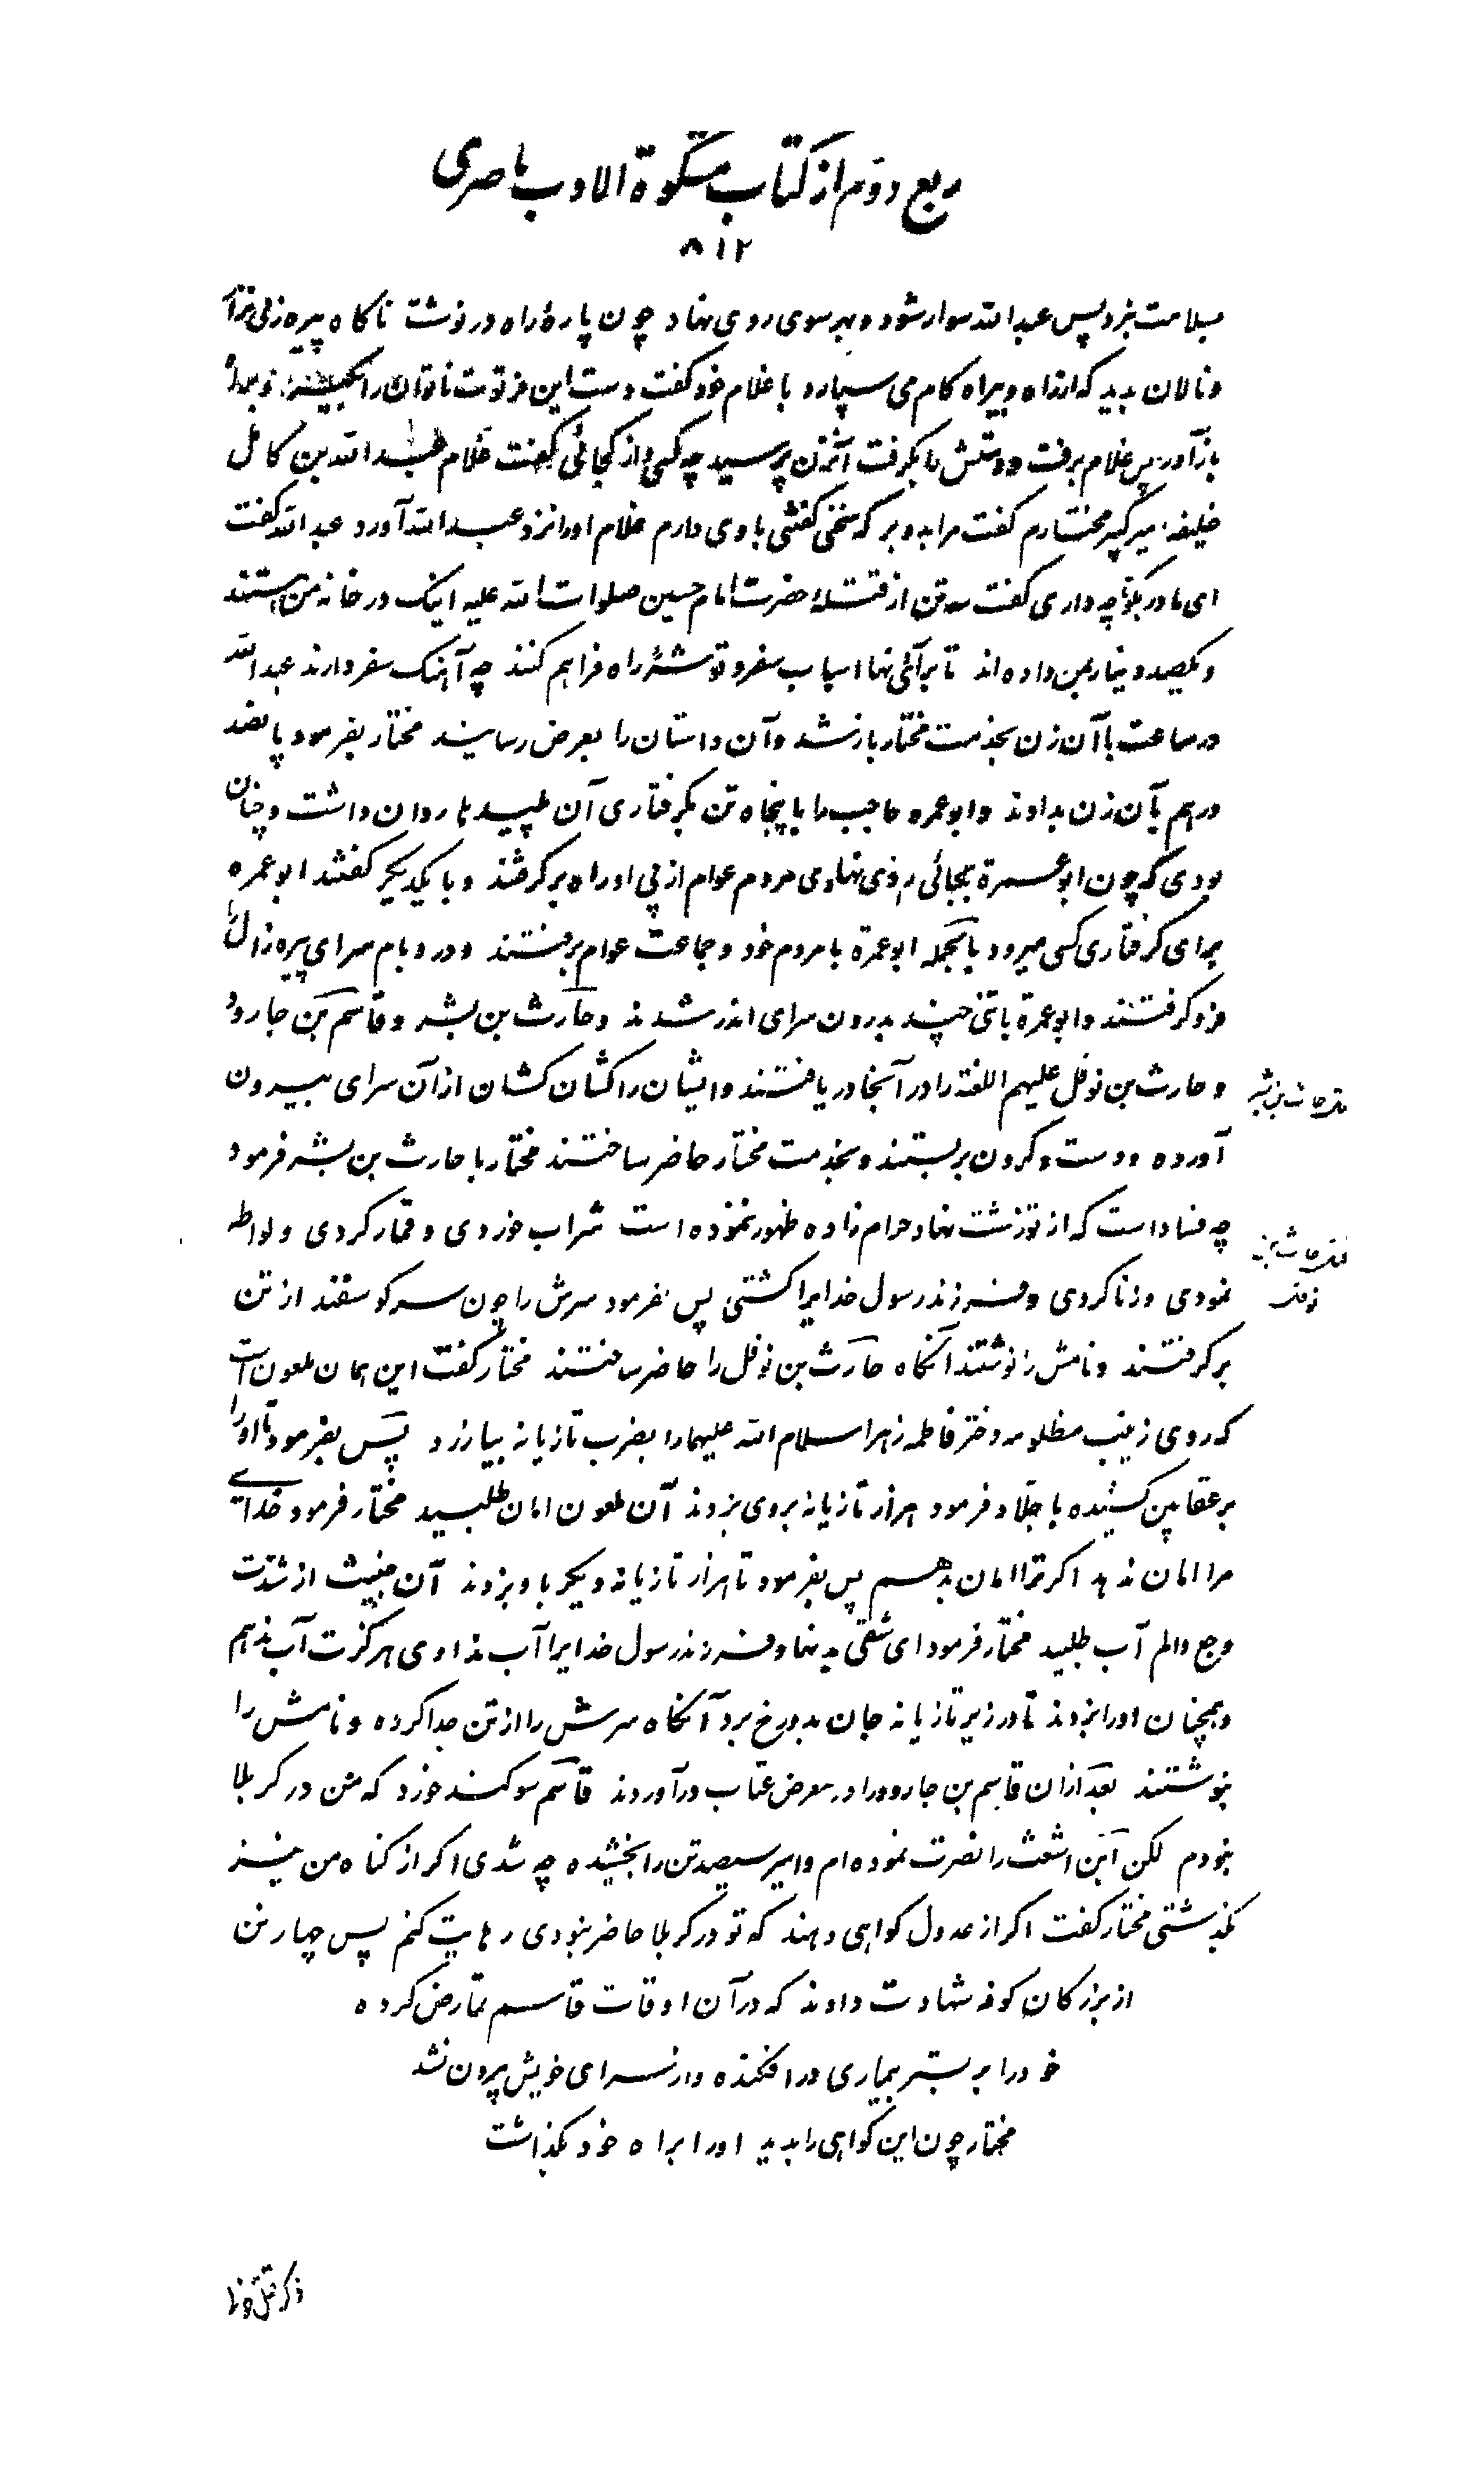 ربع دوّم از کتاب مشکوة الادب ناصری
۸۱۲
بسلامت نبرد پس عبدالله سوار شود و بهر سوی روی نهاد چون پارهٔ راه در نوشت ناکاه پیره زلی
و نالان بدید که از راه و بیراه کام می سپارد با غلام خود کفت دست این فرتوت ناتوان را بکیر و نزد
باز آور پس غلام برفت و دستش را بکرفت آنزن پرسید چه کسی و از کجائی کفت غلام عبدالله بن کامل
خلیفه میر کبیر مختارم کفت مرا بدو بر که سخنی کفتنی با وی دارم غلام او را نزد عبدالله آورد عبدالله کفت
ای مادر بکو چه داری کفت سه تن از قتلهٔ حضرت امام حسین صلوات الله علیه اینک در خانه من هستند
و یکصد دینار بمن داده اند تا برای آنها اسباب سفر و توشهٔ راه فراهم کنند چه آهنک سفر دارند عبدالله
در ساعت با آن زن بخدمت مختار باز شد و آن داستان را بعرض رسانید مختار بفرمود پانصد
درهم بآن زن بدادند و ابو عمره حاجب را با پنجاه تن بکرفتاری آن پلید ها روان داشت و چنان
بودی که چون ابو عمرة بجائی روی نهادی مردم عوام از پی او راه بر کرفتند و با یکدیکر کفتند ابو عمره
برای کرفتاری کسی میرود بالجمله ابو عمرة با مردم خود و جماعت عوام برفتند و در و بام سرای پیره زال را
فرو کرفتند و ابو عمرة با تنی چند بدرون سرای اندر شدند و حارث بن بشر و قاسم بن جارود
و حارث بن نوفل علیهم اللعنة را در آنجا در یافتند و ایشان را کشان کشان از آن سرای بیرون
آورده و دست و کردن بر بستند و بخدمت مختار حاضر ساختند مختار با حارث بن بشر فرمود
چه فسادا است که از تو زشت نهاد حرام زاده ظهور ننموده است شراب خوردی و قمار کردی و لواطه
نمودی و زنا کردی و فرزند رسول خدایرا کشتی پس بفرمود سرش را چون سر کوسفند از تن
بر کرفتند و نامش را نوشتند آنکاه حارث بن نوفل را حاضر ساختند مختار کفت این همان ملعون است
که روی زینب مظلومه دختر فاطمه زهرا سلام الله علیهما را بضرب تازیانه بیازرد پس بفرمود تا او را
بر عقابین کشیده با جلّاد فرمود هزار تازیانه بروی بزدند آن ملعون امان طلبید مختار فرمود خدای
مرا امان ندهد اکر ترا امان بدهم پس بفرمود تا هزار تازیانه دیکر باو بزدند آن خبیث از شدّت
وجع و الم آب طلبید مختار فرمود ای شقی بد نهاد فرزند رسول خدایرا آب ندادی هرکزت آب ندهم
و همچنان او را بزدند تا در زیر تازیانه جان بدوزخ برد آنکاه سرش را از تن جدا کرده و نامش را
بنوشتند بعد از ان قاسم بن جارود را در معرض عتاب در آوردند قاسم سوکند خورد که من در کربلا
نبودم لکن ابن اشعث را نصرت نموده ام و امیر سیصد تن را بخشیده چه شدی اکر از کناه من نیز
بکذشتی مختار کفت اکر از عدول کواهی دهند که تو در کربلا حاضر نبودی رهایت کنم پس چهار تن
از بزرکان کوفه شهادت دادند که در آن اوقات قاسم تمارض کرده
خود را بر بستر بیماری در افکنده و از سرای خویش بیرون نشد
مختار چون این کواهی را بدید او را براه خود بکذاشت
قتل حارث بن بشر
قتل حارث بن
نوفل
ذکر قتل